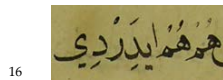 هُمْ هُمْ ايدِرْدِي
16